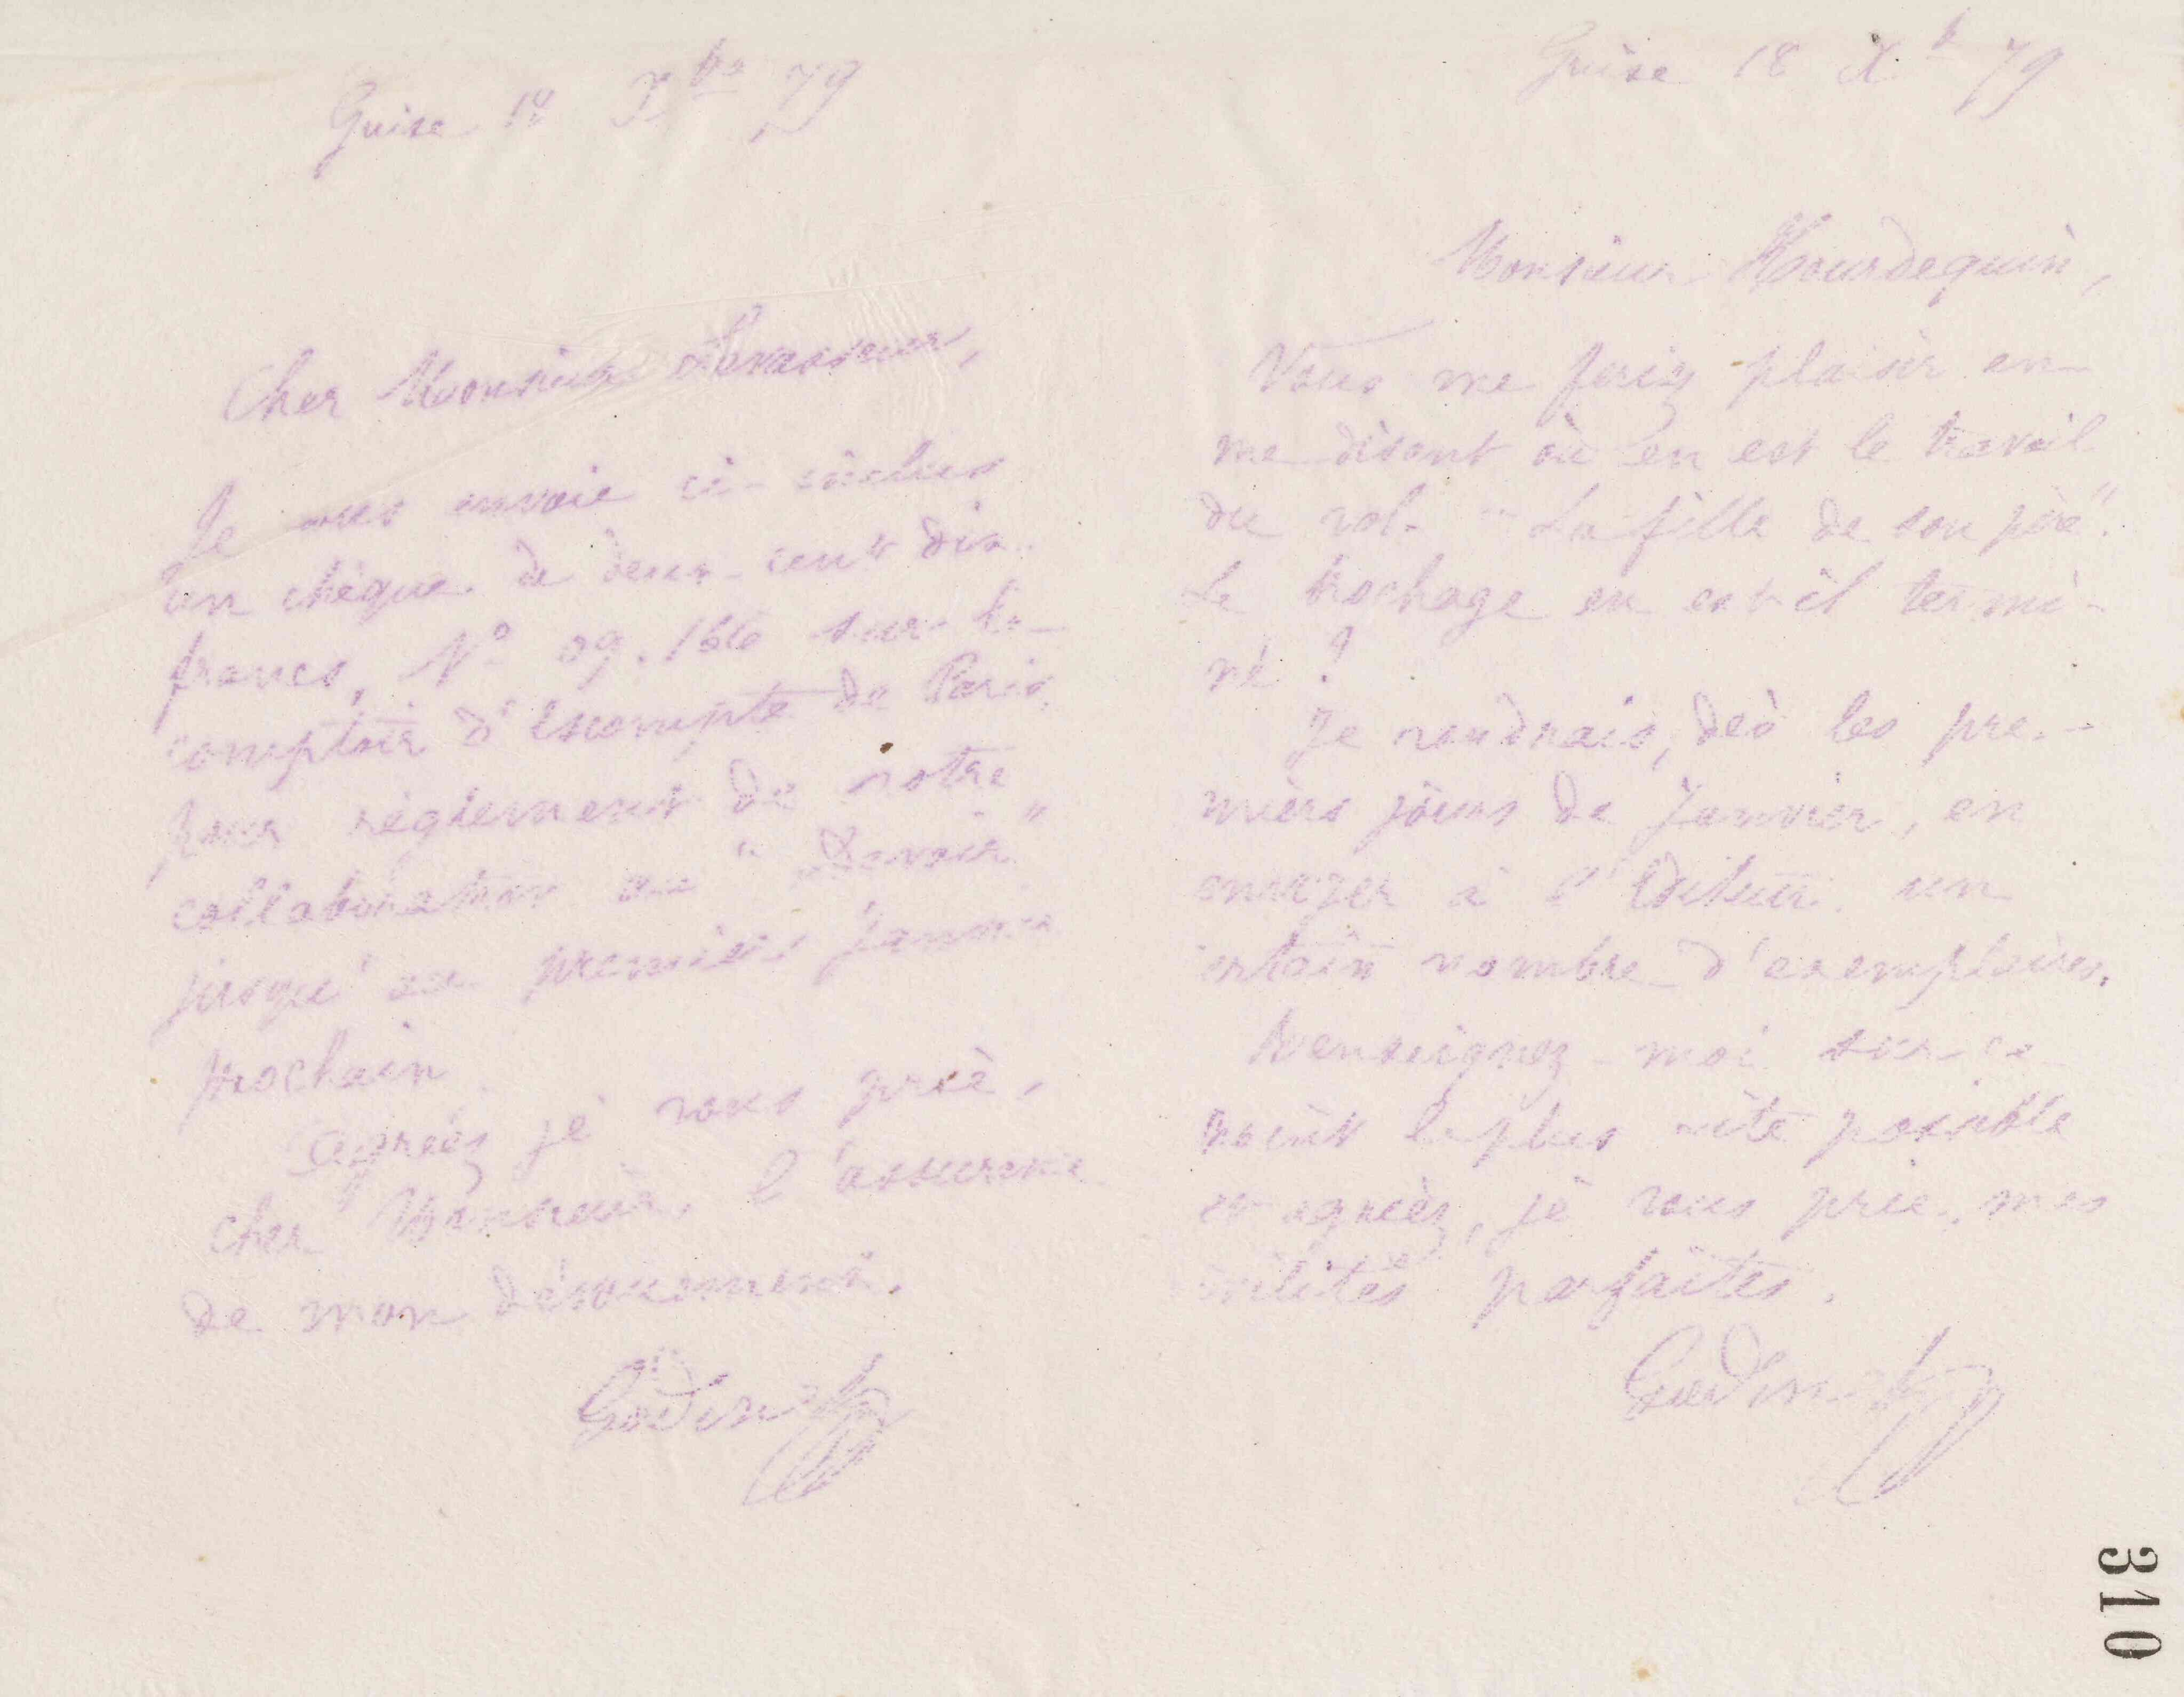 Guise 18 Xbre 79
Cher Monsieur
Je vous envoie ci-inclus
un chèque de deux-cents dix
francs, N° 09.166 sur le
comptoir d'Escompte de Paris,
pour règlement de votre
collaboration au "Devoir"
jusqu'au premier janvier
prochain.
Agréez je vous prie,
cher Monsieur, l'assurance
de mon dévouement.
Godin
Guise 18 Xb 79
Monsieur Hourdequin,
Vous me feriez plaisir en
me disant où en est le travail
du vol. "La fille de son père".
Le brochage en est-il termi-
né ?
Je voudrais, dès les pre-
miers jours de Janvier, en
envoyer à l'Editeur un
certain nombre d'exemplaires.
Renseignez-moi sur ce
point le plus vite possible
et agréez, je vous prie, mes
civilités parfaites.
Godin
310